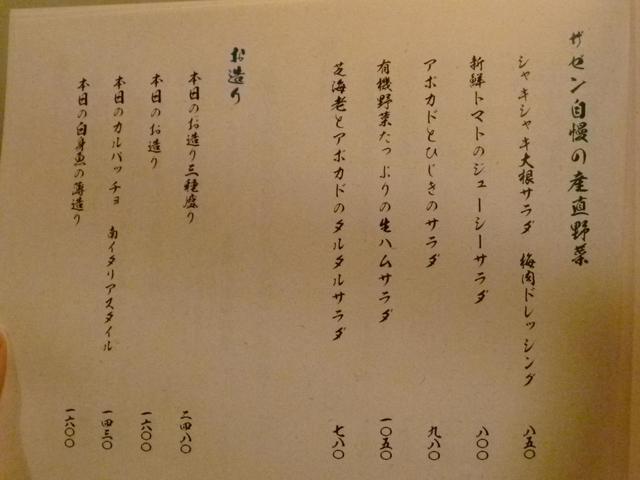 ザゼン自慢の産直野菜
シャキシャキ大根サラダ 梅肉ドレッシング 八五〇
新鮮トマトのジューシーサラダ 八〇〇
アボカドとひじきのサラダ 九八〇
有機野菜たっぷりの生ハムサラダ 一〇五〇
芝海老とアボカドのタルタルサラダ 七八〇
お造り
本日のお造り三種盛り 二四八〇
本日のお造り 一六〇〇
本日のカルパッチョ 南イタリアスタイル 一四三〇
本日の白身魚の薄造り 一六〇〇